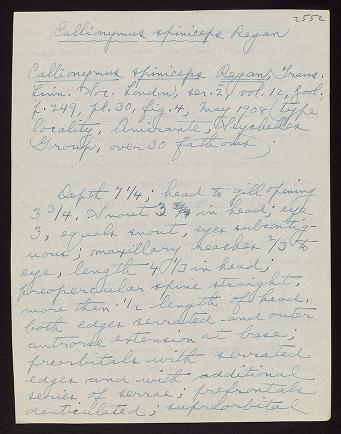 2552
Callionymus spiniceps Regan
Callionymus spiniceps Regan, Trans.
Linn. Soc. London, ser. 2, vol. 12, Zool.,
p. 249, pl. 30, fig. 4, May 1908 (type
locality, Amirante, Seychelles
Group, over 30 fathoms).
Depth 7 1/4; head to gill opening
3 3/4. Snout 3 in head; eye
3, equals snout, eyes subcontig-
uous; maxillary reaches 2/3 to
eye, length 4 1/3 in head;
preopercular spine straight,
more than 1/2 length of head,
both edges serrated and outer
antrorse extension at base;
preorbitals with serrated
edges and with additional
series of serrae; prefrontals
denticulated; supraorbital